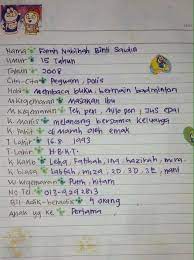 Nama Farah Nabihah Binti Saudin
Umur 15 Tahun
Tahun 2008
Cita-cita Peguam, Polis
Hobi Membaca buku, bermain badminton
M. Kegemaran Masakan Ibu
M. Kegemaran Teh pen, Milo pen, Jus epal
K. Manis melancong bersama keluarga
K. Pahit di marah oleh emak
T. Lahir 16.8 1993
T. Lahir H.B.K.T.
K. Karib Leha, Fatihah, ina, hazirah, mira
K. biasa Labfah, miza, 2D, 3D, 3E, nani
W. Kegemaran Putih, hitam
No Tel 013-9292813
Bil. Adik-beradik 4 orang
Anak yg ke Pertama